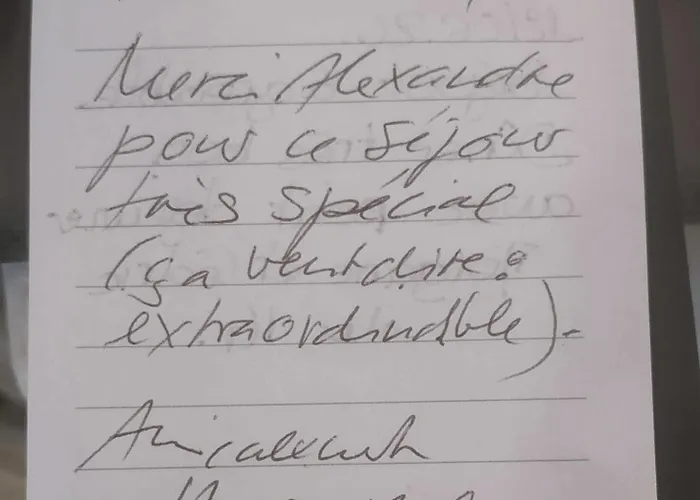 Merci Alexandre
pour ce séjour
très spécial
(ça veut dire :
extraordinable).
Amicalement